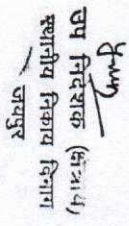 उप निदेशक (क्षेत्रीय)
स्थानीय निकाय विभाग
जयपुर